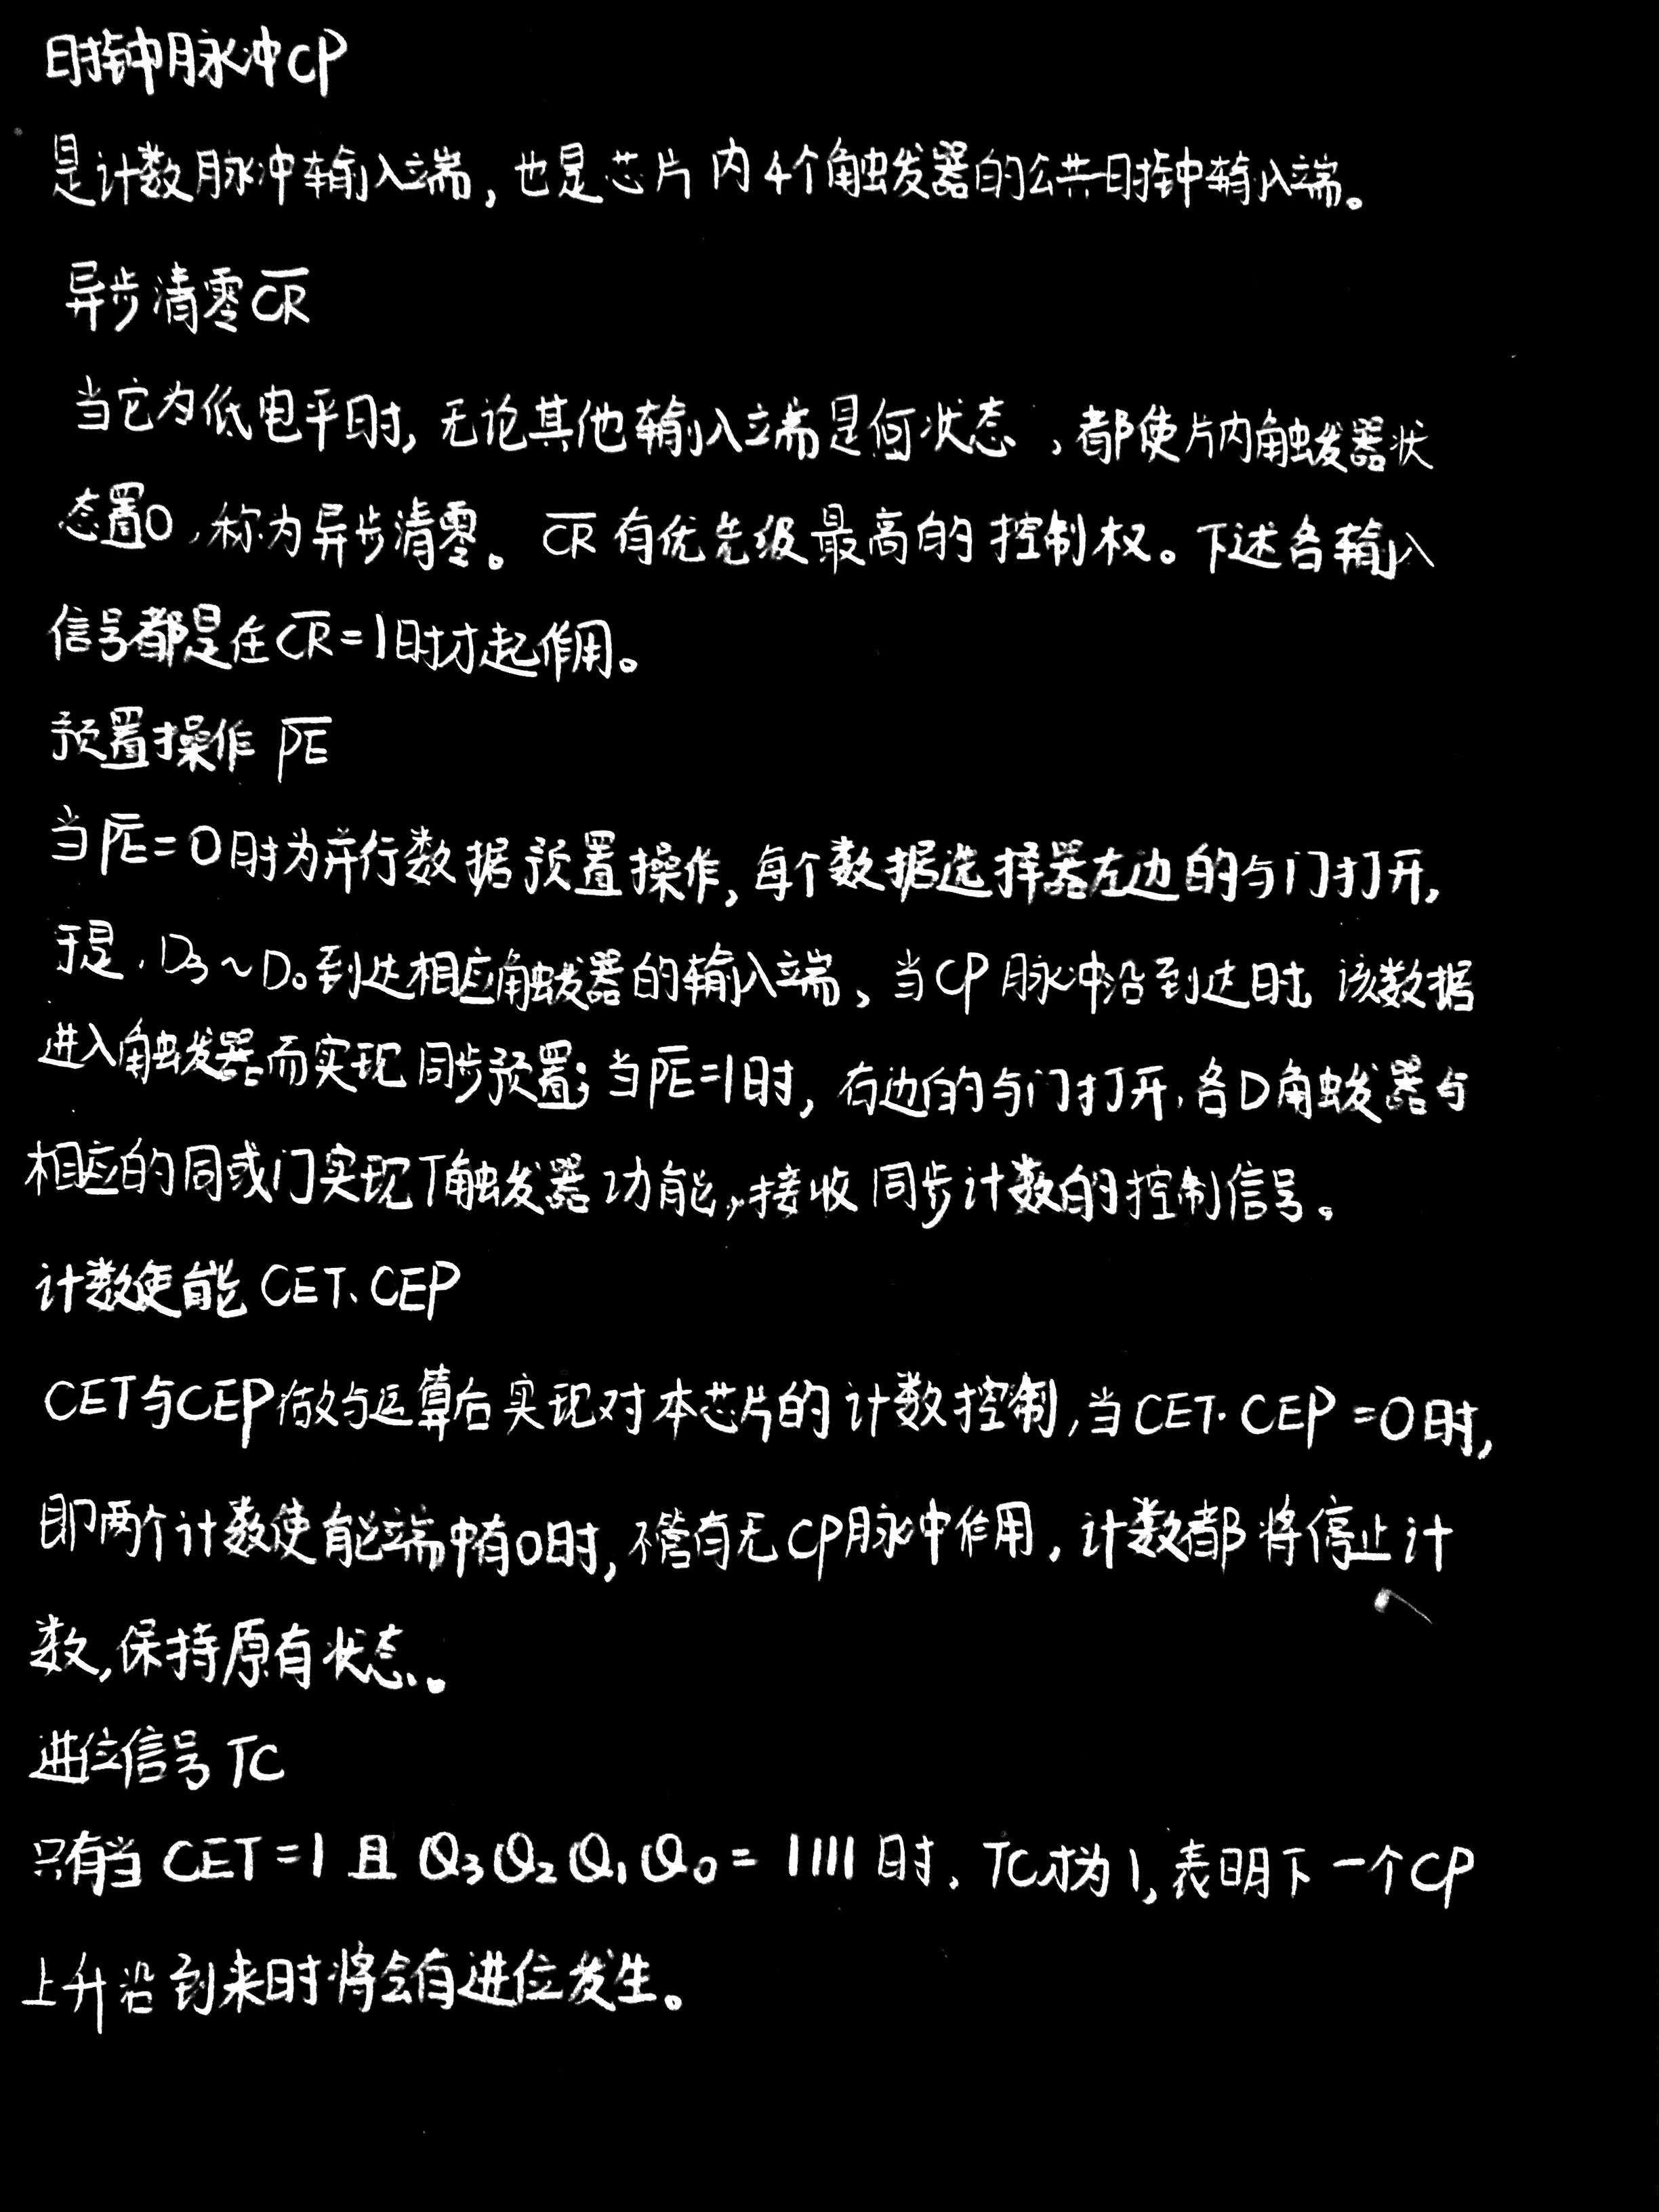 时钟脉冲CP
是计数脉冲输入端,也是芯片内4个触发器的公共时钟输入端。
异步清零C̅R̅
当它为低电平时,无论其他输入端是何状态,都使片内触发器状
态置0,称为异步清零。C̅R̅有优先级最高的控制权。下述各输入
信号都是在C̅R̅=1时才起作用。
预置操作 P̅E̅
当P̅E̅=0时为并行数据预置操作,每个数据选择器左边的与门打开,
于是,D₃~D₀到达相应触发器的输入端、当CP脉冲沿到达时,该数据
进入触发器而实现同步预置;当P̅E̅=1时,右边的与门打开,各D触发器与
相应的同或门实现T触发器功能,接收同步计数的控制信号。
计数使能 CET、CEP
CET与CEP做与运算后实现对本芯片的计数控制,当CET·CEP=0时,
即两个计数使能端中有0时,不管有无CP脉冲作用,计数都将停止计
数,保持原有状态。
进位信号TC
只有当CET=1且Q₃Q₂Q₁Q₀=1111时,TC才为1,表明下一个CP
上升沿到来时将会有进位发生。